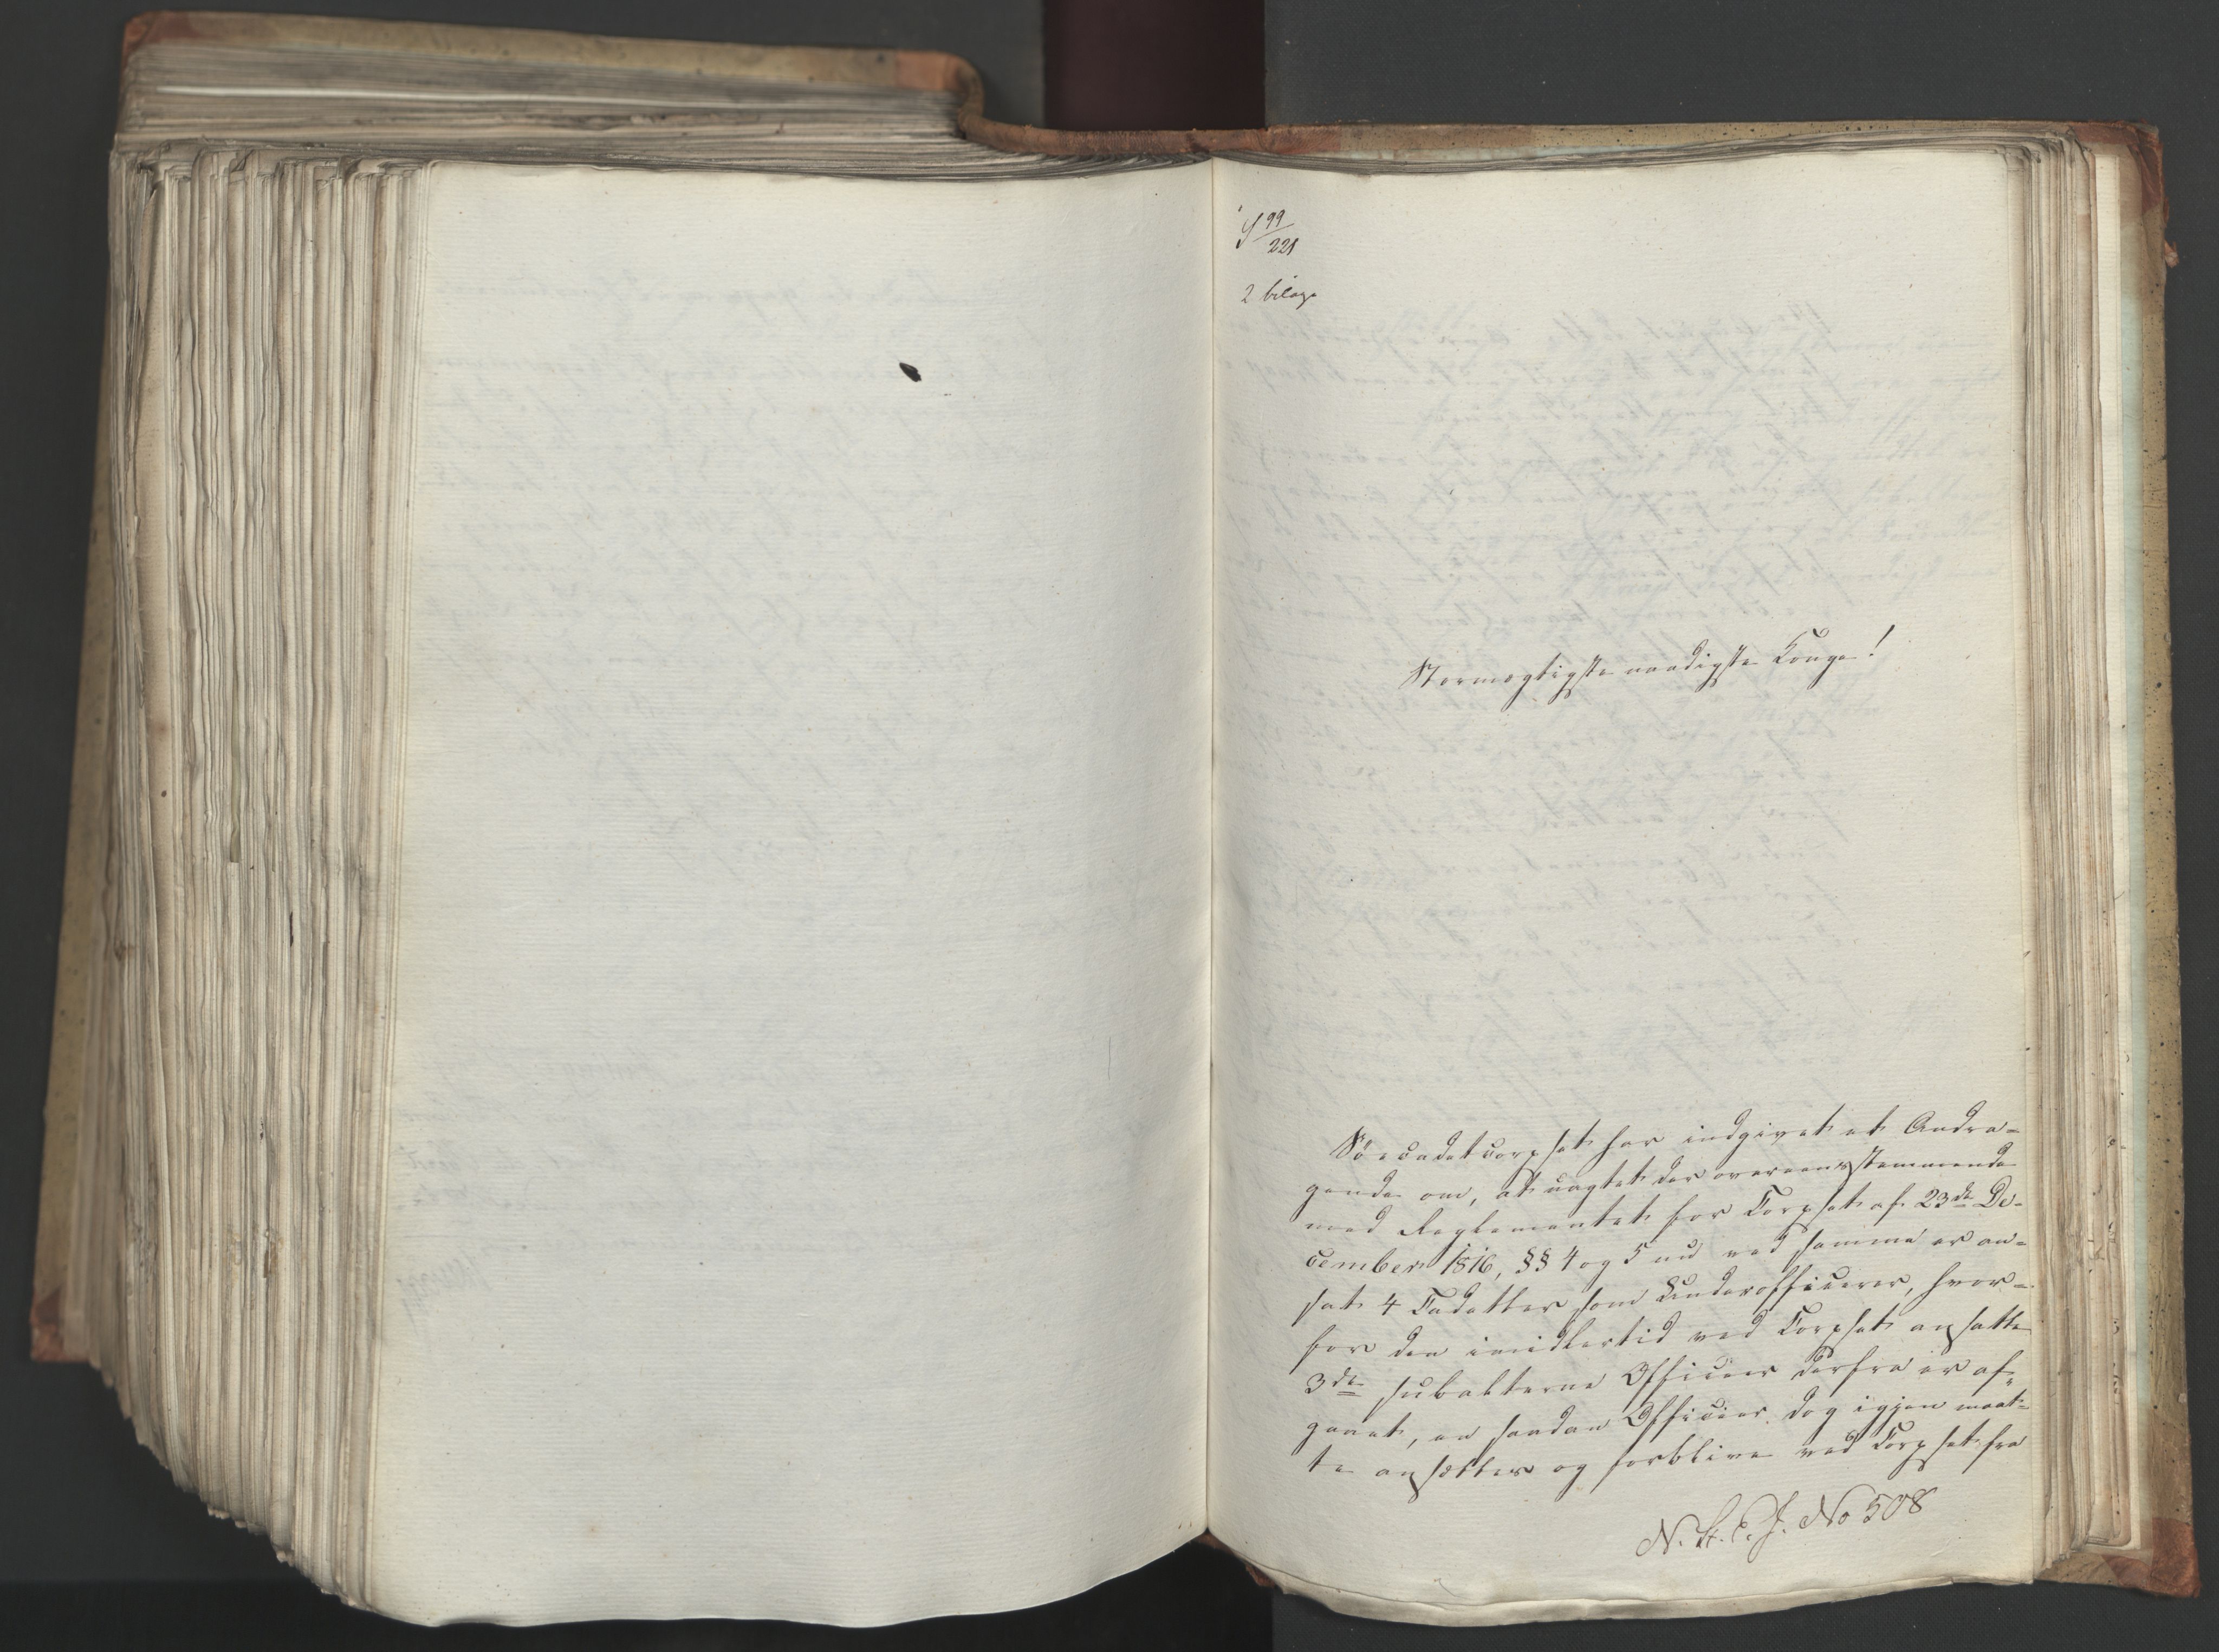 S 99/221
2 bilage
Stormægtigste naadigste Konge!
Søecadetcorpset har indgivet et Andra-
gende om, at uagtet der overeensstemmende
med Reglementet for Corpset af 23de De-
cember 1816, §§ 4 og 5 nu ved samme er an-
sat 4 Cadetter som Underofficerer, hvor-
for den imidlertid ved Corpset ansatte
3de subalterne Officeer derfra er af-
gaaet, en saadan Officier dog igjen maat-
te ansættes og forblive ved Corpset fra
N. St. E. J. No 508